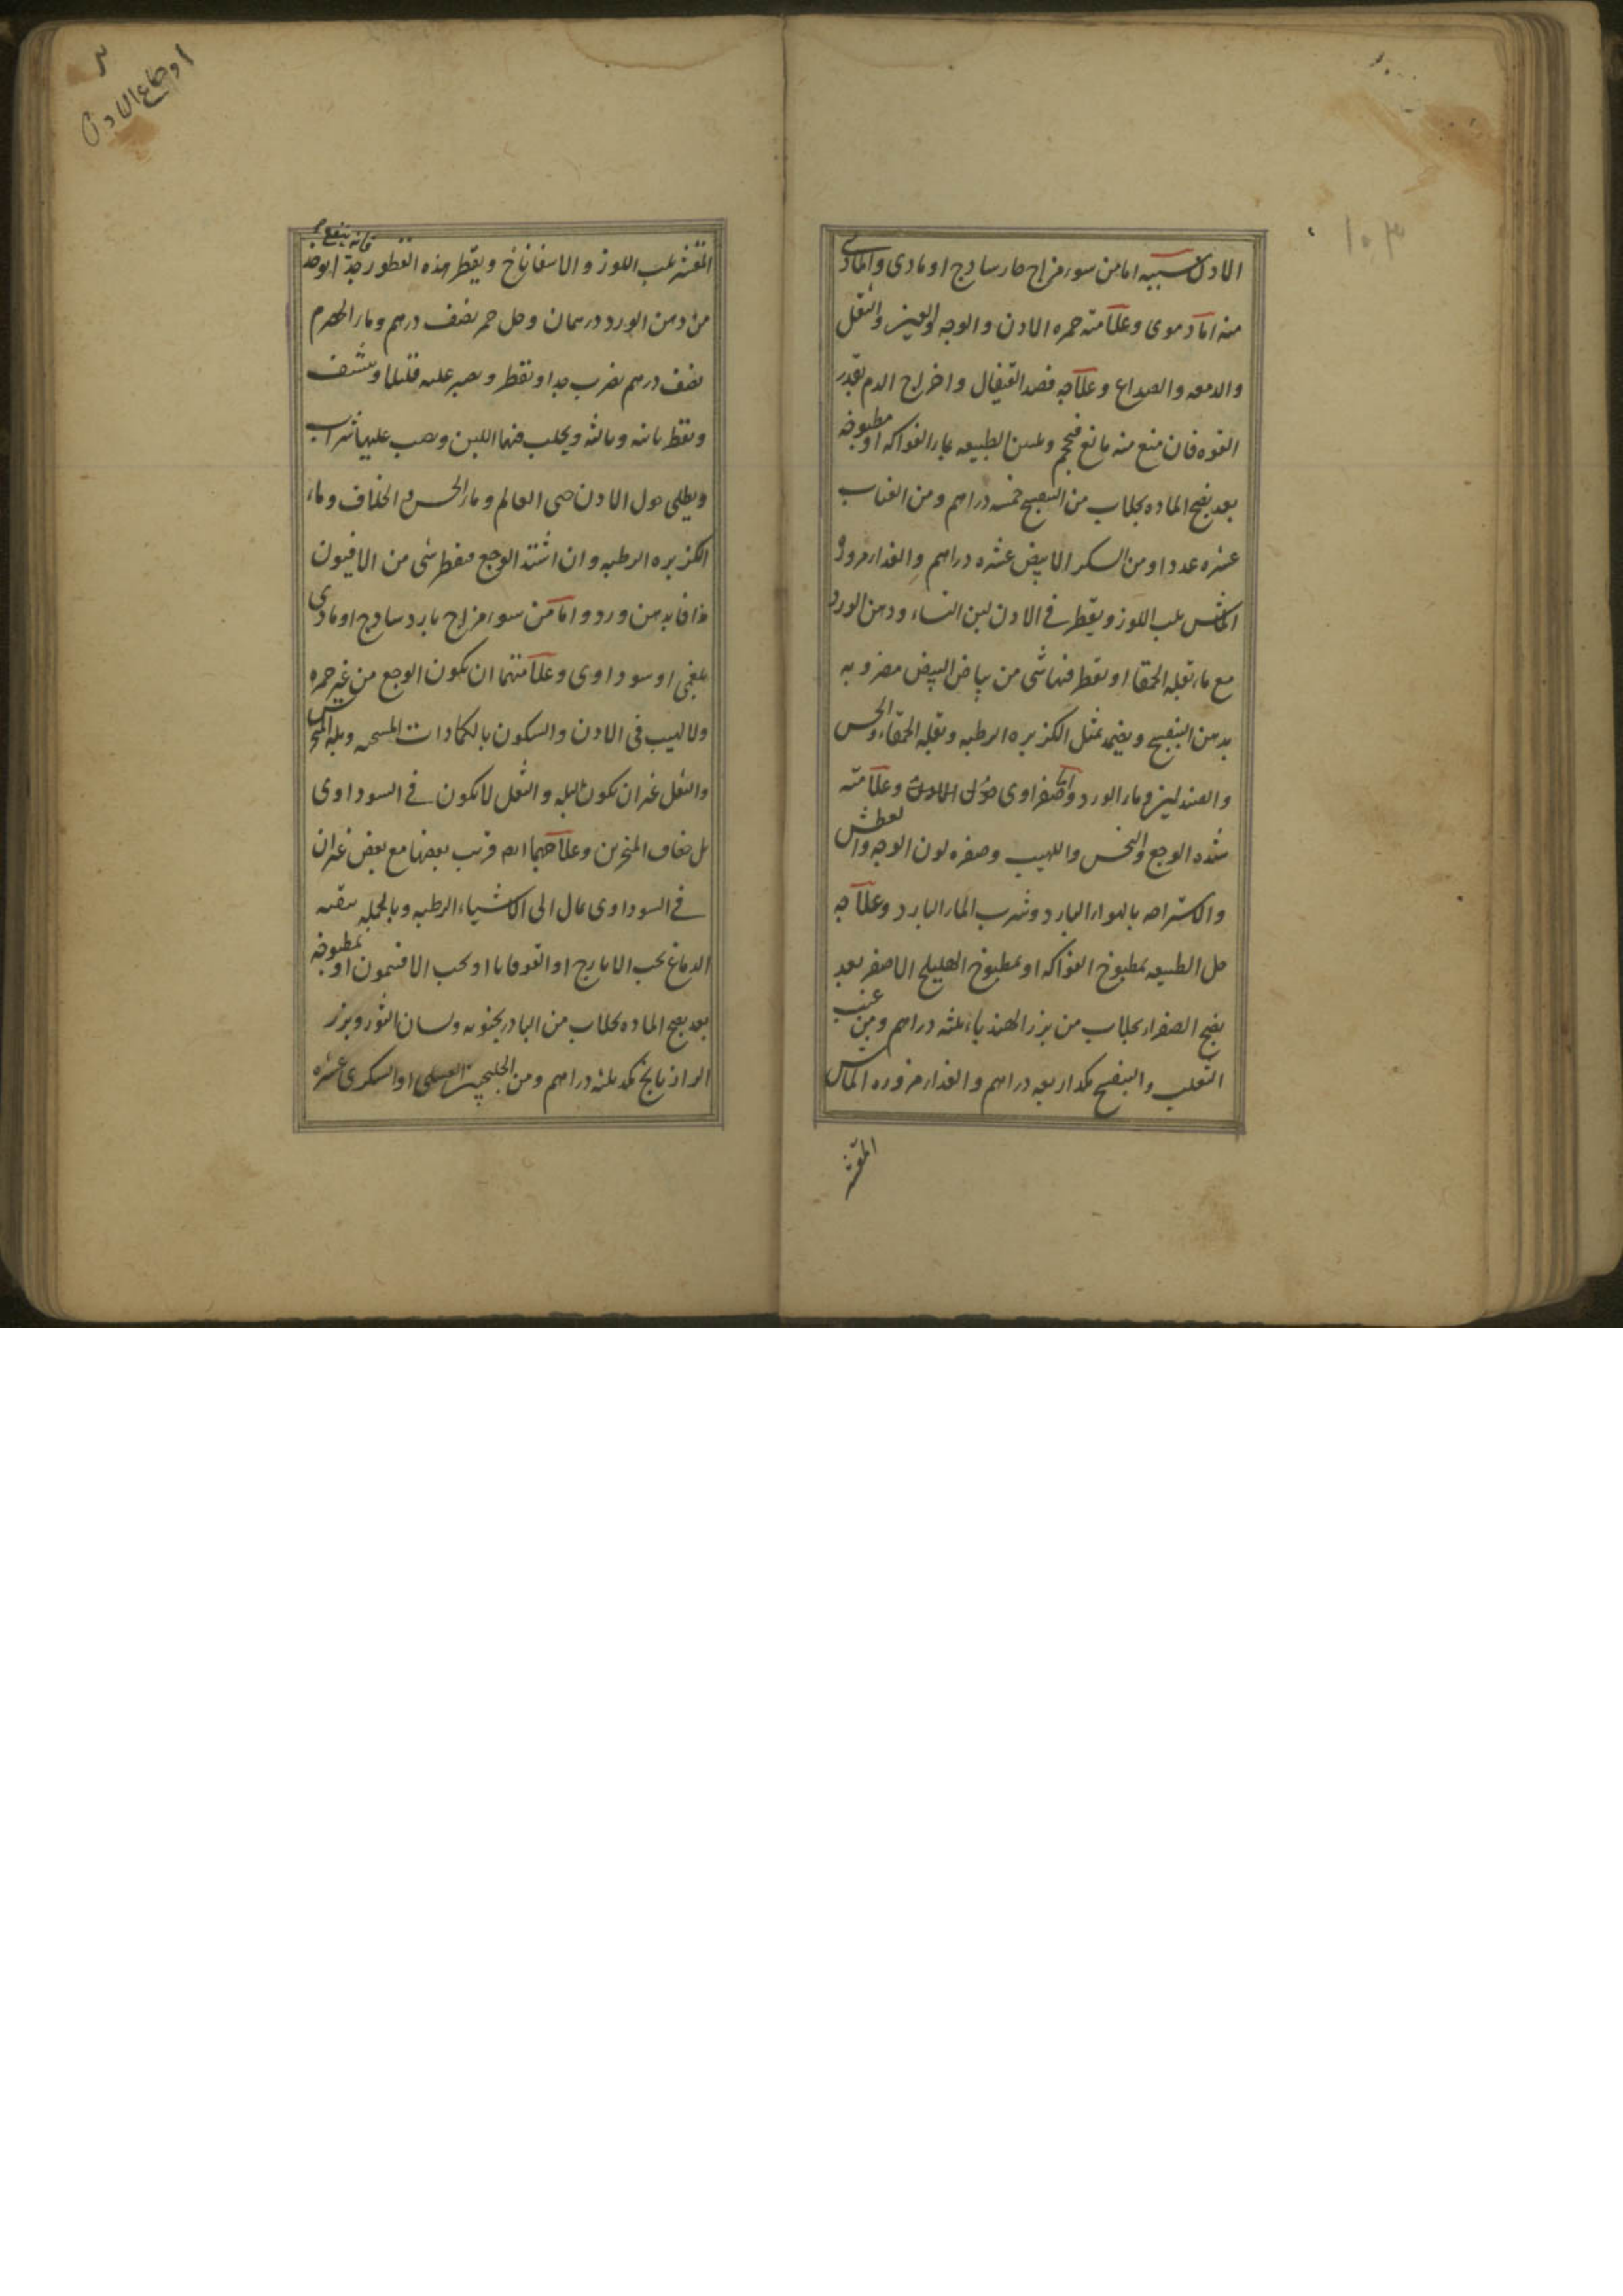 ١٠٣
الاذن سببه اما من سوء مزاج حار ساذج او مادى والمادى
منه اما دموى وعلامته حمره الاذن والوجه والعين والثقل
والدمعه والصداع وعلاجه فصد القيفال واخراج الدم بقدر
القوه فان منع منه مانع فيحجم وتليين الطبيعه بماء الفواكه او مطبوخه
بعد نضج الماده بجلاب من البنفسج خمسه دراهم ومن العناب
عشره عددا ومن السكر الابيض عشره دراهم والغداء مزوره
الماش بلب اللوز ويقطر فى الاذن لبن النساء ودهن الورد
مع ماء بقله الحمقا او يقطر فيها شى من بياض البيض مضروبه
بدهن البنفسج ويضمد بمثل الكزبره الرطبه وبقله الحمقاء والخس
والصندلين وماء الورد واما صفراوى حول الاذن وعلامته
شده الوجع والنخس واللهيب وصفره لون الوجه والعطش
والاستراحه بالهواء البارد وشرب الماء البارد وعلاجه
حل الطبيعه بمطبوخ الفواكه او بمطبوخ الهليلج الاصفر بعد
نضج الصفراء بجلاب من بزر الهندباء ثلثه دراهم ومن عنب
الثعلب والبنفسج مكد اربعه دراهم والغداء مزوره الماش
المقشر
اوجاع الاذن
المقشر بلب اللوز والاسفاناخ ويقطر هذه القطور فانه ينفع جدا يوخذ
من دهن الورد درهمان وخل خمر نصف درهم وماء الحصرم
نصف درهم يضرب جدا ويقطر ويصبر عليه قليلا وينشف
ويقطر ثانيه وثالثه ويحلب فيها اللبن ويصب عليها شراب
ويطلى حول الاذن حى العالم وماء الخس والخلاف وماء
الكزبره الرطبه وان اشتد الوجع فقطر شى من الافيون
مذافا بدهن ورد واما من سوء مزاج بارد ساذج او مادى
بلغمى او سوداوى وعلامتهما ان يكون الوجع من غير حمره
ولا لهيب فى الاذن والسكون بالكمادات المسخنه وبله المنخرين
والثقل غير ان يكون البله والثقل لا يكون فى السوداوى
بل جفاف المنخرين وعلاجهما ايضا قريب بعضها مع بعض غير ان
فى السوداوى يمال الى الاشياء الرطبه وبالجمله ينقيه
الدماغ بحب الايارج او القوقايا او بحب الافتيمون او بمطبوخه
بعد نضج الماده بجلاب من البادرنجبويه ولسان الثور وبزر
الرازيانج مكد ثلثه دراهم ومن الجلنجبين العسلى او السكرى عشره